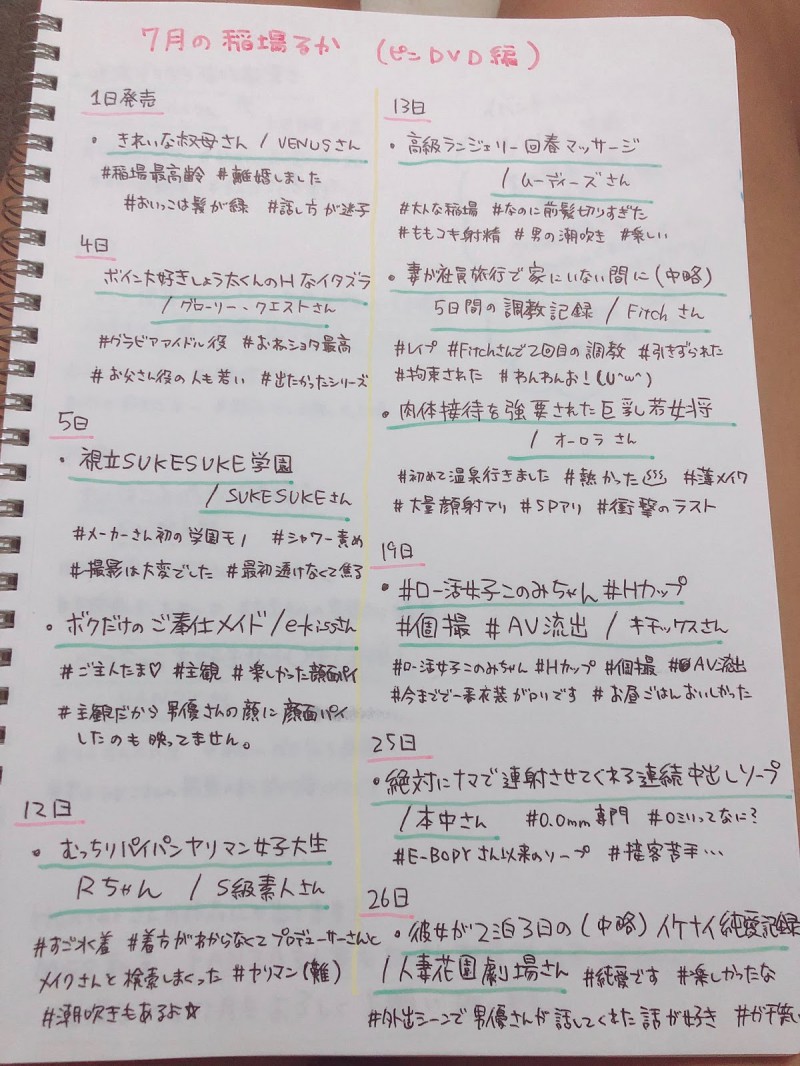 7月の稲場るか （ピンDVD編）
1日発売
・きれいな叔母さん / VENUSさん
#稲場最高齢 #離婚しました
#おいっこは髪が緑 #話し方が迷子
4日
ボイン大好きしょう太くんのHなイタズラ
/ グローリー・クエストさん
#グラビアアイドル役 #おねショタ最高
#お父さん役の人も若い #出たかったシリーズ
5日
・視立SUKESUKE学園
/ SUKESUKEさん
#メーカーさん初の学園モノ #シャワー責め
#撮影は大変でした #最初透けなくて焦る
・ボクだけのご奉仕メイド / e-kissさん
#ご主人たま♡ #主観 #楽しかった顔面パイ
#主観だから男優さんの顔に顔面パイ
したのも映ってません。
12日
・むっちりパイパンヤリマン女子大生
Rちゃん / S級素人さん
#すご水着 #着方がわからなくてプロデューサーさんと
メイクさんと検索しまくった #ヤリマン(難)
#潮吹きもあるよ☆
13日
・高級ランジェリー回春マッサージ
/ ムーディーズさん
#大人な稲場 #なのに前髪切りすぎた
#ももコキ射精 #男の潮吹き #楽しい
・妻が社員旅行で家にいない間に（中略）
5日間の調教記録 / Fitchさん
#レイプ #Fitchさんで2回目の調教 #引きずられた
#拘束された #わんわんお！(U^w^)
・肉体接待を強要された巨乳若女将
/ オーロラさん
#初めて温泉行きました #熱かった♨ #薄メイク
#大量顔射アリ #SPアリ #衝撃のラスト
19日
・#ロー活女子このみちゃん #Hカップ
#個撮 #AV流出 / キチックスさん
#ロー活女子このみちゃん #Hカップ #個撮 #AV流出
#今までで一番衣装がロリです #お昼ごはんおいしかった
25日
・絶対にナマで連射させてくれる連続中出しソープ
/ 本中さん #0.0mm専門 #0ミリってなに？
#E-BODYさん以来のソープ #接客苦手…
26日
・彼女が2泊3日の（中略）イケナイ純愛記録
/ 人妻花園劇場さん #純愛です #楽しかったな
#外出シーンで男優さんが話してくれた話が好き #ガチ笑い